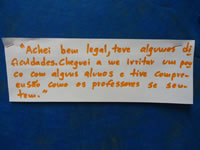 "Achei bem legal, teve algumas di
ficuldades. Cheguei a me irritar um pou
co com alguns alunos e tive compre-
ensão como os professores se sen-
tem."